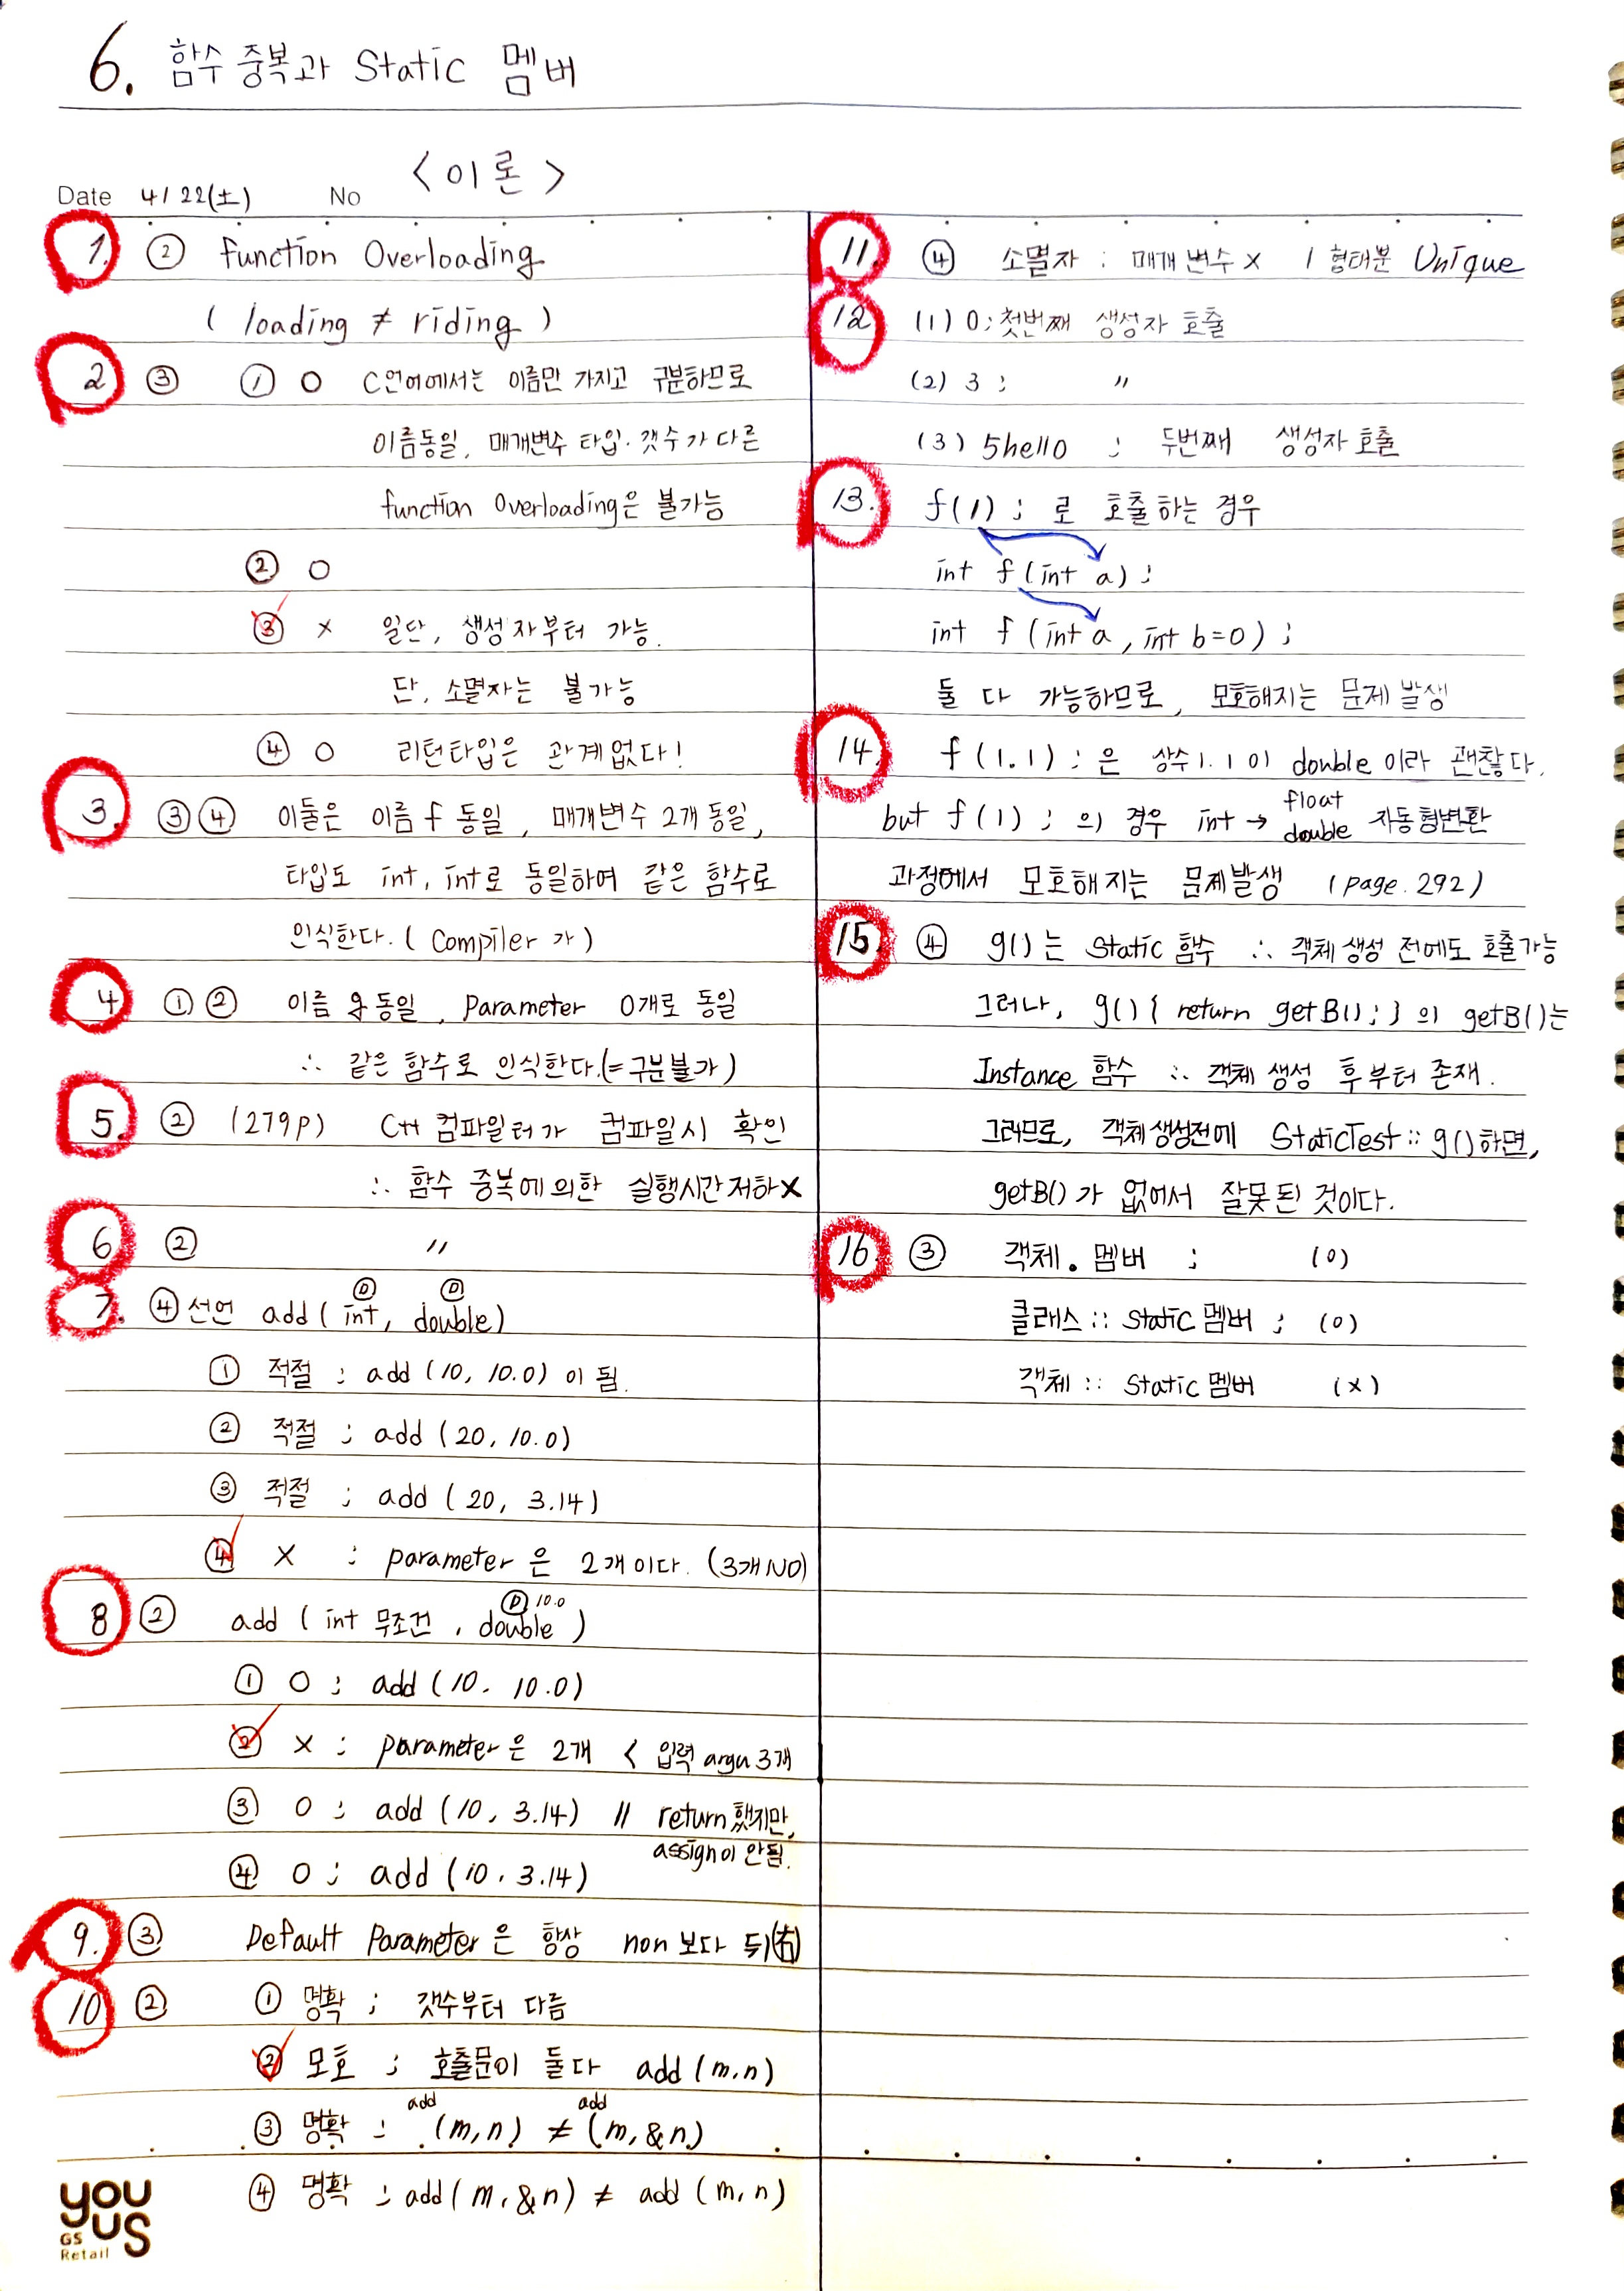 6. 함수 중복과 Static 멤버
<이론>
Date 4/22(土) No
1. ② function Overloading
( loading ≠ riding )
2 ③ ① O C언어에서는 이름만 가지고 구분하므로
이름동일, 매개변수 타입·갯수가 다른
function Overloading은 불가능
② O
③ × 일단, 생성자부터 가능.
단, 소멸자는 불가능
④ O 리턴타입은 관계없다!
3. ③④ 이둘은 이름 f 동일, 매개변수 2개 동일,
타입도 int, int로 동일하여 같은 함수로
인식한다. (Compiler 가)
4 ①② 이름 g 동일, Parameter 0개로 동일
∴ 같은 함수로 인식한다.(=구분불가)
5. ② (279p) C++ 컴파일러가 컴파일시 확인
∴ 함수 중복에 의한 실행시간저하X
6 ② "
7. ④ 선언 add( int, double)
D D
① 적절 ; add (10, 10.0) 이 됨.
② 적절 ; add (20, 10.0)
③ 적절 ; add (20, 3.14)
④ X ; parameter 은 2개이다. (3개 NO)
8 ② add ( int 무조건, double )
D 10.0
① O ; add (10. 10.0)
② X ; parameter은 2개 < 입력 argu 3개
③ O ; add (10, 3.14) // return했지만,
assign이 안됨.
④ O ; add (10, 3.14)
9. ③ Default Parameter은 항상 non 보다 뒤(右)
10 ② ① 명확 ; 갯수부터 다름
② 모호 ; 호출문이 둘다 add (m,n)
③ 명확 ; add (m,n) ≠ add (m,&n)
④ 명확 ; add( m, &n) ≠ add (m, n)
11. ④ 소멸자 : 매개변수 × 1 형태뿐 Unique
12 (1) 0 ; 첫번째 생성자 호출
(2) 3 ; "
(3) 5hello ; 두번째 생성자 호출
13. f(1) ; 로 호출하는 경우
int f (int a) ;
int f (int a, int b=0) ;
둘 다 가능하므로, 모호해지는 문제 발생
14. f (1.1) ; 은 상수 1.1 이 double 이라 괜찮다.
but f (1) ; 의 경우 int → float double 자동형변환
과정에서 모호해지는 문제발생 (page. 292)
15. ④ g()는 Static 함수 ∴ 객체생성 전에도 호출가능
그러나, g() { return getB(); } 의 getB()는
Instance 함수 ∴ 객체 생성 후부터 존재.
그러므로, 객체생성전에 StaticTest :: g() 하면,
getB()가 없어서 잘못된 것이다.
16 ③ 객체 . 멤버 ; (o)
클래스 :: Static 멤버 ; (o)
객체 :: Static 멤버 (x)
you us
GS
Retail